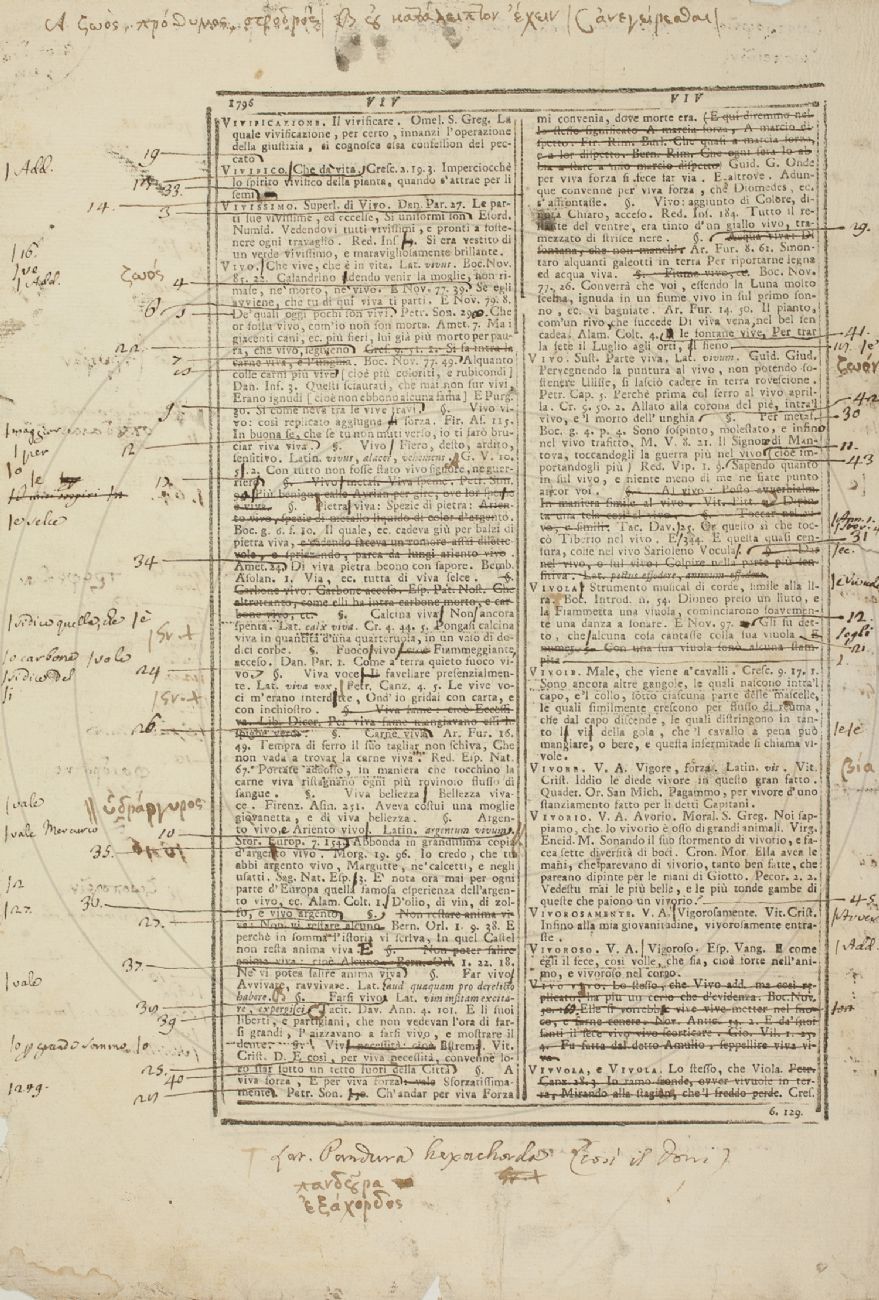 A ζωός πρόθυμος
1796 VIV VIV
VIVIFICAZIONE. Il vivificare. Omel. S. Greg. La
quale vivificazione, per certo, innanzi l'operazione
della giustizia, si cognosce essa confession del pec-
cato
VIVIFICO. Che dà vita. Cresc. 2. 19. 3. Imperciocchè
lo spirito vivifico della pianta, quando s'attrae per li
semi
VIVISSIMO. Superl. di Vivo. Dan. Par. 27. Le par-
ti sue vivissime, ed eccelse, Sì uniformi son
Numid. Vedendovi tutti vivissimi, e pronti a soste-
nere ogni travaglio. Red. Ins. Si era vestito di
un verde vivissimo, e maravigliosamente brillante.
VIVO. Che vive, che è in vita. Lat. vivus. Boc. Nov.
85. 22. Calandrino dendo venir la moglie, non ri-
mase, nè morto, nè vivo. E Nov. 77. 39. Se egli
avviene, che tu di qui viva ti parti. E Nov. 79. 8.
De' quali oggi pochi son vivi. Petr. Son. Che
or fossu vivo, com'io non son morta. Amet. 7. Ma i
giacenti cani, ec. più fieri, lui già più morto per pau-
ra, che vivo, Cresc. 9. 51. 2. Si
carne viva, e l'unghia. Boc. Nov. 77. 49. Alquanto
colle carni più vive [cioè più coloriti, e rubicondi]
Dan. Inf. 3. Questi sciaurati, che mai non fur vivi,
Erano ignudi [cioè non ebbono alcuna fama] E Purg.
30. Sì come neva tra le vive travi. §. Vivo vi-
vo: così replicato aggiugne forza. Fir. As. 115.
In buona fè, che se tu non muti verso, io ti farò bru-
ciar viva viva. §. Vivo Fiero, desto, ardito,
sensitivo. Latin. vivus, alacer, vehemens. G. V. 10.
5. 2. Con tutto non fosse stato vivo signore, nè guer-
rier §. Vivo metal. Viva speme. Petr. Son.
Più benigne
e viva. §. Pietra viva: Spezie di pietra: Arien-
to vivo, spezie di metallo liquido di color d'argento.
Boc. g. 6. f. 10. Il quale, ec. cadeva giù per balzi di
pietra viva, e cadendo faceva un romore assai dilette-
vole, e sprizzando, parea da lungi ariento vivo.
Amet. 24. Di viva pietra beono con sapore. Bemb.
Asolan. 1. Via, ec. tutta di viva selce. §.
Carbone vivo: Carbone acceso. Esp. Pat. Nost. Che
altrettanto, come elli ha intra carbone morto, e car-
bone vivo, ec. §. Calcina viva Non ancora
spenta. Lat. calx viva. Cr. 4. 44. 5. Pongasi calcina
viva in quantità d'una quarteruola, in un vaso di do-
dici corbe. §. Fuoco vivo Fiammeggiante,
acceso. Dan. Par. 1. Come a terra quieto fuoco vi-
vo. §. Viva voce Il favellare presenzialmen-
te. Lat. viva vox. Petr. Canz. 4. 5. Le vive vo-
ci m'erano interditte, Ond'io gridai con carta, e
con inchiostro. §. Viva fame: cioè Eccessi-
va. Lib. Dicer. Per viva fame mangiavano
§. Carne viva Ar. Fur. 16.
49. Tempra di ferro il suo tagliar non schiva, Che
non vada a trovar la carne viva. Red. Esp. Nat.
67. Portate addosso, in maniera che tocchino la
carne viva ristagnano ogni più rovinoso flusso di
sangue. §. Viva bellezza Bellezza viva-
ce. Firenz. Asin. 251. Aveva costui una moglie
giovanetta, e di viva bellezza. §. Argen-
to vivo, e Ariento vivo. Latin. argentum vivum.
Stor. Europ. 7. 154. Abbonda in grandissima copia
d'argento vivo. Morg. 19. 96. Io credo, che tu
abbi argento vivo, Margutte, ne' calcetti, e negli
usatti. Sag. Nat. Esp. 3. E' nota ora mai per ogni
parte d'Europa quella famosa esperienza dell'argen-
to vivo, ec. Alam. Colt. 1. D'olio, di vin, di zol-
fo, e vivo argento. §. Non restare anima vi-
va: Non vi restare alcuno. Bern. Orl. 1. 9. 38. E
perchè in somma l'istoria vi scriva, In quel Castel
non resta anima viva. E §. Non poter salire
anima viva: cioè Alcuno. Bern. Orl. 1. 22. 18.
Nè vi potea salire anima viva §. Far vivo
Avvivare, ravvivare. Lat. haud quaquam pro derelicto
habere. §. Farsi vivo Lat. vim insitam excita-
re, expergisci. Tacit. Dav. Ann. 4. 101. E li suoi
liberti, e partigiani, che non vedevan l'ora di far-
si grandi, l'aizzavano a farsi vivo, e mostrare il
dente. §. Viva necessità: cioè Estrema. Vit.
Crist. D. E così, per viva necessità, convenne lo-
ro star sotto un tetto fuori della Città §. A
viva forza, E per viva forza: vale Sforzatissima-
mente. Petr. Son. Ch'andar per viva Forza
mi convenia, dove morte era. (E qui diremmo nel-
lo stesso significato, A marcia forza, A marcio di-
spetto. Fir. Rim. Burl. Che quasi a marcia forza,
e a lor dispetto. Bern. Rim. Che ogni sera lo ab-
bia a fare a suo marcio dispetto. Guid. G. Onde
per viva forza si fece far via. E altrove. Adun-
que convenne per viva forza, che Diomedes, ec.
s'affrontasse. §. Vivo: aggiunto di Colore, di-
nota Chiaro, acceso. Red. Ins. 184. Tutto il re-
stante del ventre, era tinto d'un giallo vivo, tra-
mezzato di strisce nere. §. Acqua viva: Di
fontana, che non manchi. Ar. Fur. 8. 61. Smon-
taro alquanti galeotti in terra Per riportarne legna
ed acqua viva. §. Fiume vivo, ec. Boc. Nov.
77. 26. Converrà che voi, essendo la Luna molto
scema, ignuda in un fiume vivo in sul primo son-
no, ec. vi bagniate. Ar. Fur. 14. 50. Il pianto,
com'un rivo, che succede Di viva vena, nel bel sen
cadea. Alam. Colt. 4. le fontane vive, Per trar
la sete il Luglio agli orti, al fieno.
VIVO. Sust. Parte viva. Lat. vivum. Guid. Giud.
Pervegnendo la puntura al vivo, non potendo so-
stenere Ulisse, si lasciò cadere in terra rovescione.
Petr. Cap. 5. Perchè prima col ferro al vivo apri-
la. Cr. 5. 50. 2. Allato alla corona del piè, intra'l
vivo, e'l morto dell'unghia §. Per metaf.
Boc. g. 4. p. 4. Sono sospinto, molestato, e infino
nel vivo trafitto. M. V. 8. 21. Il Signor di Man-
tova, toccandogli la guerra più nel vivo (cioè im-
portandogli più) Red. Vip. 1. 9. Sapendo quanto
in sul vivo, e niente meno di me ne siate punto
ancor voi. §. Al vivo: Posto avverbialm.
In maniera simile al vivo. Vit. Pitt. 47. Dipin-
ta una tela così al vivo. §. Toccar nel vi-
vo, e simili. Tac. Dav. 25. Or questo sì che toc-
cò Tiberio nel vivo. E 344. E questa quasi cen-
sura, colse nel vivo Sarioleno Vocula. §. Dar
nel vivo, o sul vivo: Colpire nella parte più sen-
sitiva. Lat. pectus effodere, animum effodere.
VIVOLA Strumento musical di corde, simile alla li-
ra. Boc. Introd. n. 54. Dioneo preso un liuto, e
la Fiammetta una viuola, cominciarono soavemen-
te una danza a sonare. E Nov. 97. Gli fu det-
to, che alcuna cosa cantasse colla sua viuola. E
numer. Con una sua viuola sonò alcuna stam-
pita
VIVOLE. Male, che viene a' cavalli. Cresc. 9. 17. 1.
Sono ancora altre gangole, le quali nascono intra'l
capo, e'l collo, sotto ciascuna parte delle mascelle,
le quali similmente crescono per flusso di reuma,
che dal capo discende, le quali distringono in tan-
to la via della gola, che 'l cavallo a pena può
mangiare, o bere, e questa infermitade si chiama vi-
vole.
VIVORE. V. A. Vigore, forza. Latin. vis. Vit.
Crist. Iddio le diede vivore in questo gran fatto.
Quader. Or. San Mich. Pagammo, per vivore d'uno
stanziamento fatto per li detti Capitani.
VIVORIO. V. A. Avorio. Moral. S. Greg. Noi sap-
piamo, che lo vivorio è osso di grandi animali. Virg.
Eneid. M. Sonando il suo stormento di vivorio, e fa-
cea sette diversità di boci. Cron. Mor. Ella avea le
mani, che parevano di vivorio, tanto ben fatte, che
pareano dipinte per le mani di Giotto. Pecor. 2. 2.
Vedestu mai le più belle, e le più tonde gambe di
queste che paiono un vivorio.
VIVOROSAMENTE. V. A. Vigorosamente. Vit. Crist.
Infino alla mia giovanitudine, vivorosamente entra-
ste.
VIVOROSO. V. A. Vigoroso. Esp. Vang. E come
egli il fece, così volle, che sia, cioè forte nell'ani-
mo, e vivoroso nel corpo.
VIVO VIVO. Lo stesso, che Vivo add. ma così re-
plicato, ha più un certo che d'evidenza. Boc. Nov.
Elle si vorrebbe vive vive metter nel fuo-
co, e farne cenere. Nov. Antic. 35. 2. E da' suoi
fanti il fece vivo vivo scorticare. Gio. Vill. 1.
4. Fu fatta dal detto Amulio, seppellire viva vi-
va.
VIVUOLA, e VIVOLA. Lo stesso, che Viola. Petr.
Canz. 18. 3. In ramo fronde, ovver vivuole in ter-
ra, Mirando alla stagion, che 'l freddo perde. Cres.
6. 129.
Add.
19
33.
14.
3
16.
ve
Add.
ζωός
4
6
22
7
9
2
12
e selce
34
si dice quella, che è
o carbone vale
si dice del
24
26
vale
ὑδράργυρος
vale Mercurio
10
35.
36.
27.
23.
37
vale
39
39
25.
40
29.
41.
ζωόν
42
30
11.
43
31
12.
21.
βία
45
Add.
Lat. Pandura hexachorda (così il Doni)
πανδοῦρα
ἑξάχορδος